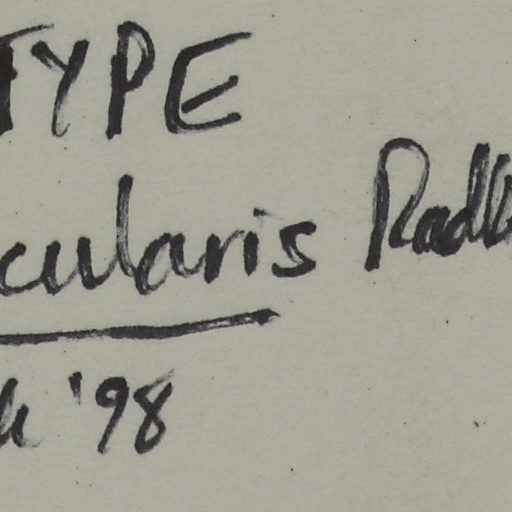 TYPE
cularis Radl
'98